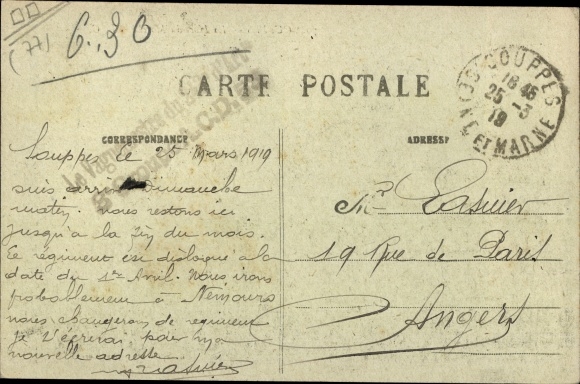 (77)
6.30
CARTE POSTALE
CORRESPONDANCE
ADRESSE
SOUPPES
18 45
25 -3
19
SEINE ET MARNE
Le Vaguemestre du
Souppes le 25 Mars 1919
suis arrivé Dimanche
matin. nous restons ici
jusqu'a la fin du mois.
Le régiment est disloqué a la
date du 1er Avril. Nous irons
probablement à Nemours
nous changerons de regiment
je t'écrirai pour ma
nouvelle adresse
Mr
19 Rue de Paris
Angers